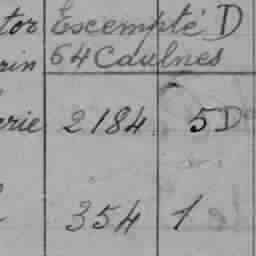 tor Escempté D
rin 64 Caulnes
erie 2184 5D
354 1